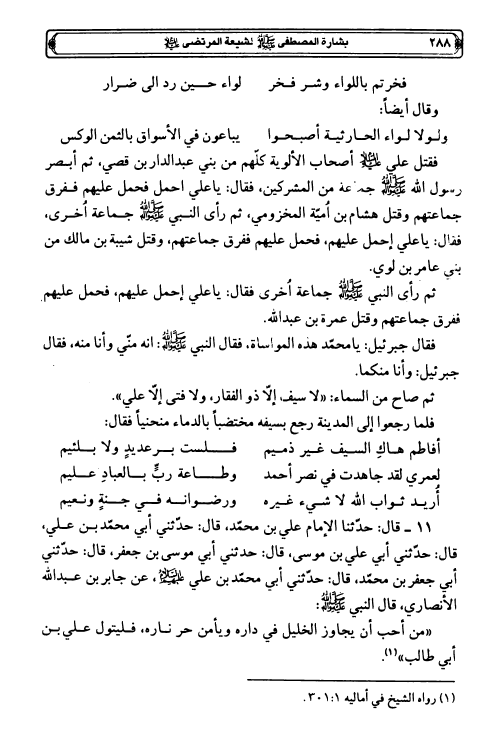 ٢٨٨ بشارة المصطفى ﷺ لشيعة المرتضى ﷺ
فخرتم باللواء وشر فخر لواء حسين رد الى ضرار
وقال أيضاً:
ولولا لواء الحارثية أصبحوا يباعون في الأسواق بالثمن الوكس
فقتل علي ﷺ أصحاب الألوية كلّهم من بني عبدالدار بن قصي، ثم أبصر
رسول الله ﷺ جماعة من المشركين، فقال: ياعلي احمل فحمل عليهم ففرق
جماعتهم وقتل هشام بن أميّة المخزومي، ثم رأى النبي ﷺ جماعة أُخرى،
فقال: ياعلي إحمل عليهم، فحمل عليهم ففرق جماعتهم، وقتل شيبة بن مالك من
بني عامر بن لوي.
ثم رأى النبي ﷺ جماعة أُخرى فقال: ياعلي إحمل عليهم، فحمل عليهم
ففرق جماعتهم وقتل عمرة بن عبدالله.
فقال جبرئيل: يامحمّد هذه المواساة، فقال النبي ﷺ: انه منّي وأنا منه، فقال
جبرئيل: وأنا منكما.
ثم صاح من السماء: «لا سيف إلّا ذو الفقار، ولا فتى إلّا علي».
فلما رجعوا إلى المدينة رجع بسيفه مختضباً بالدماء منحنياً فقال:
أفاطم هاكِ السيف غير ذميم فلست برعديدٍ ولا بلئيم
لعمري لقد جاهدت في نصر أحمد وطاعة ربٍّ بالعبادِ عليم
أُريد ثواب الله لا شيء غيره ورضوانه في جنةٍ ونعيم
١١ ـ قال: حدّثنا الإمام علي بن محمد، قال: حدّثني أبي محمّد بن علي،
قال: حدّثني أبي علي بن موسى، قال: حدثني أبي موسى بن جعفر، قال: حدّثني
أبي جعفر بن محمّد، قال: حدّثني أبي محمّد بن علي ﷺ، عن جابر بن عبدالله
الأنصاري، قال النبي ﷺ:
«من أحب أن يجاوز الخليل في داره ويأمن حر ناره، فليتول علي بن
أبي طالب»(١).
(١) رواه الشيخ في أماليه ٣٠١:١.